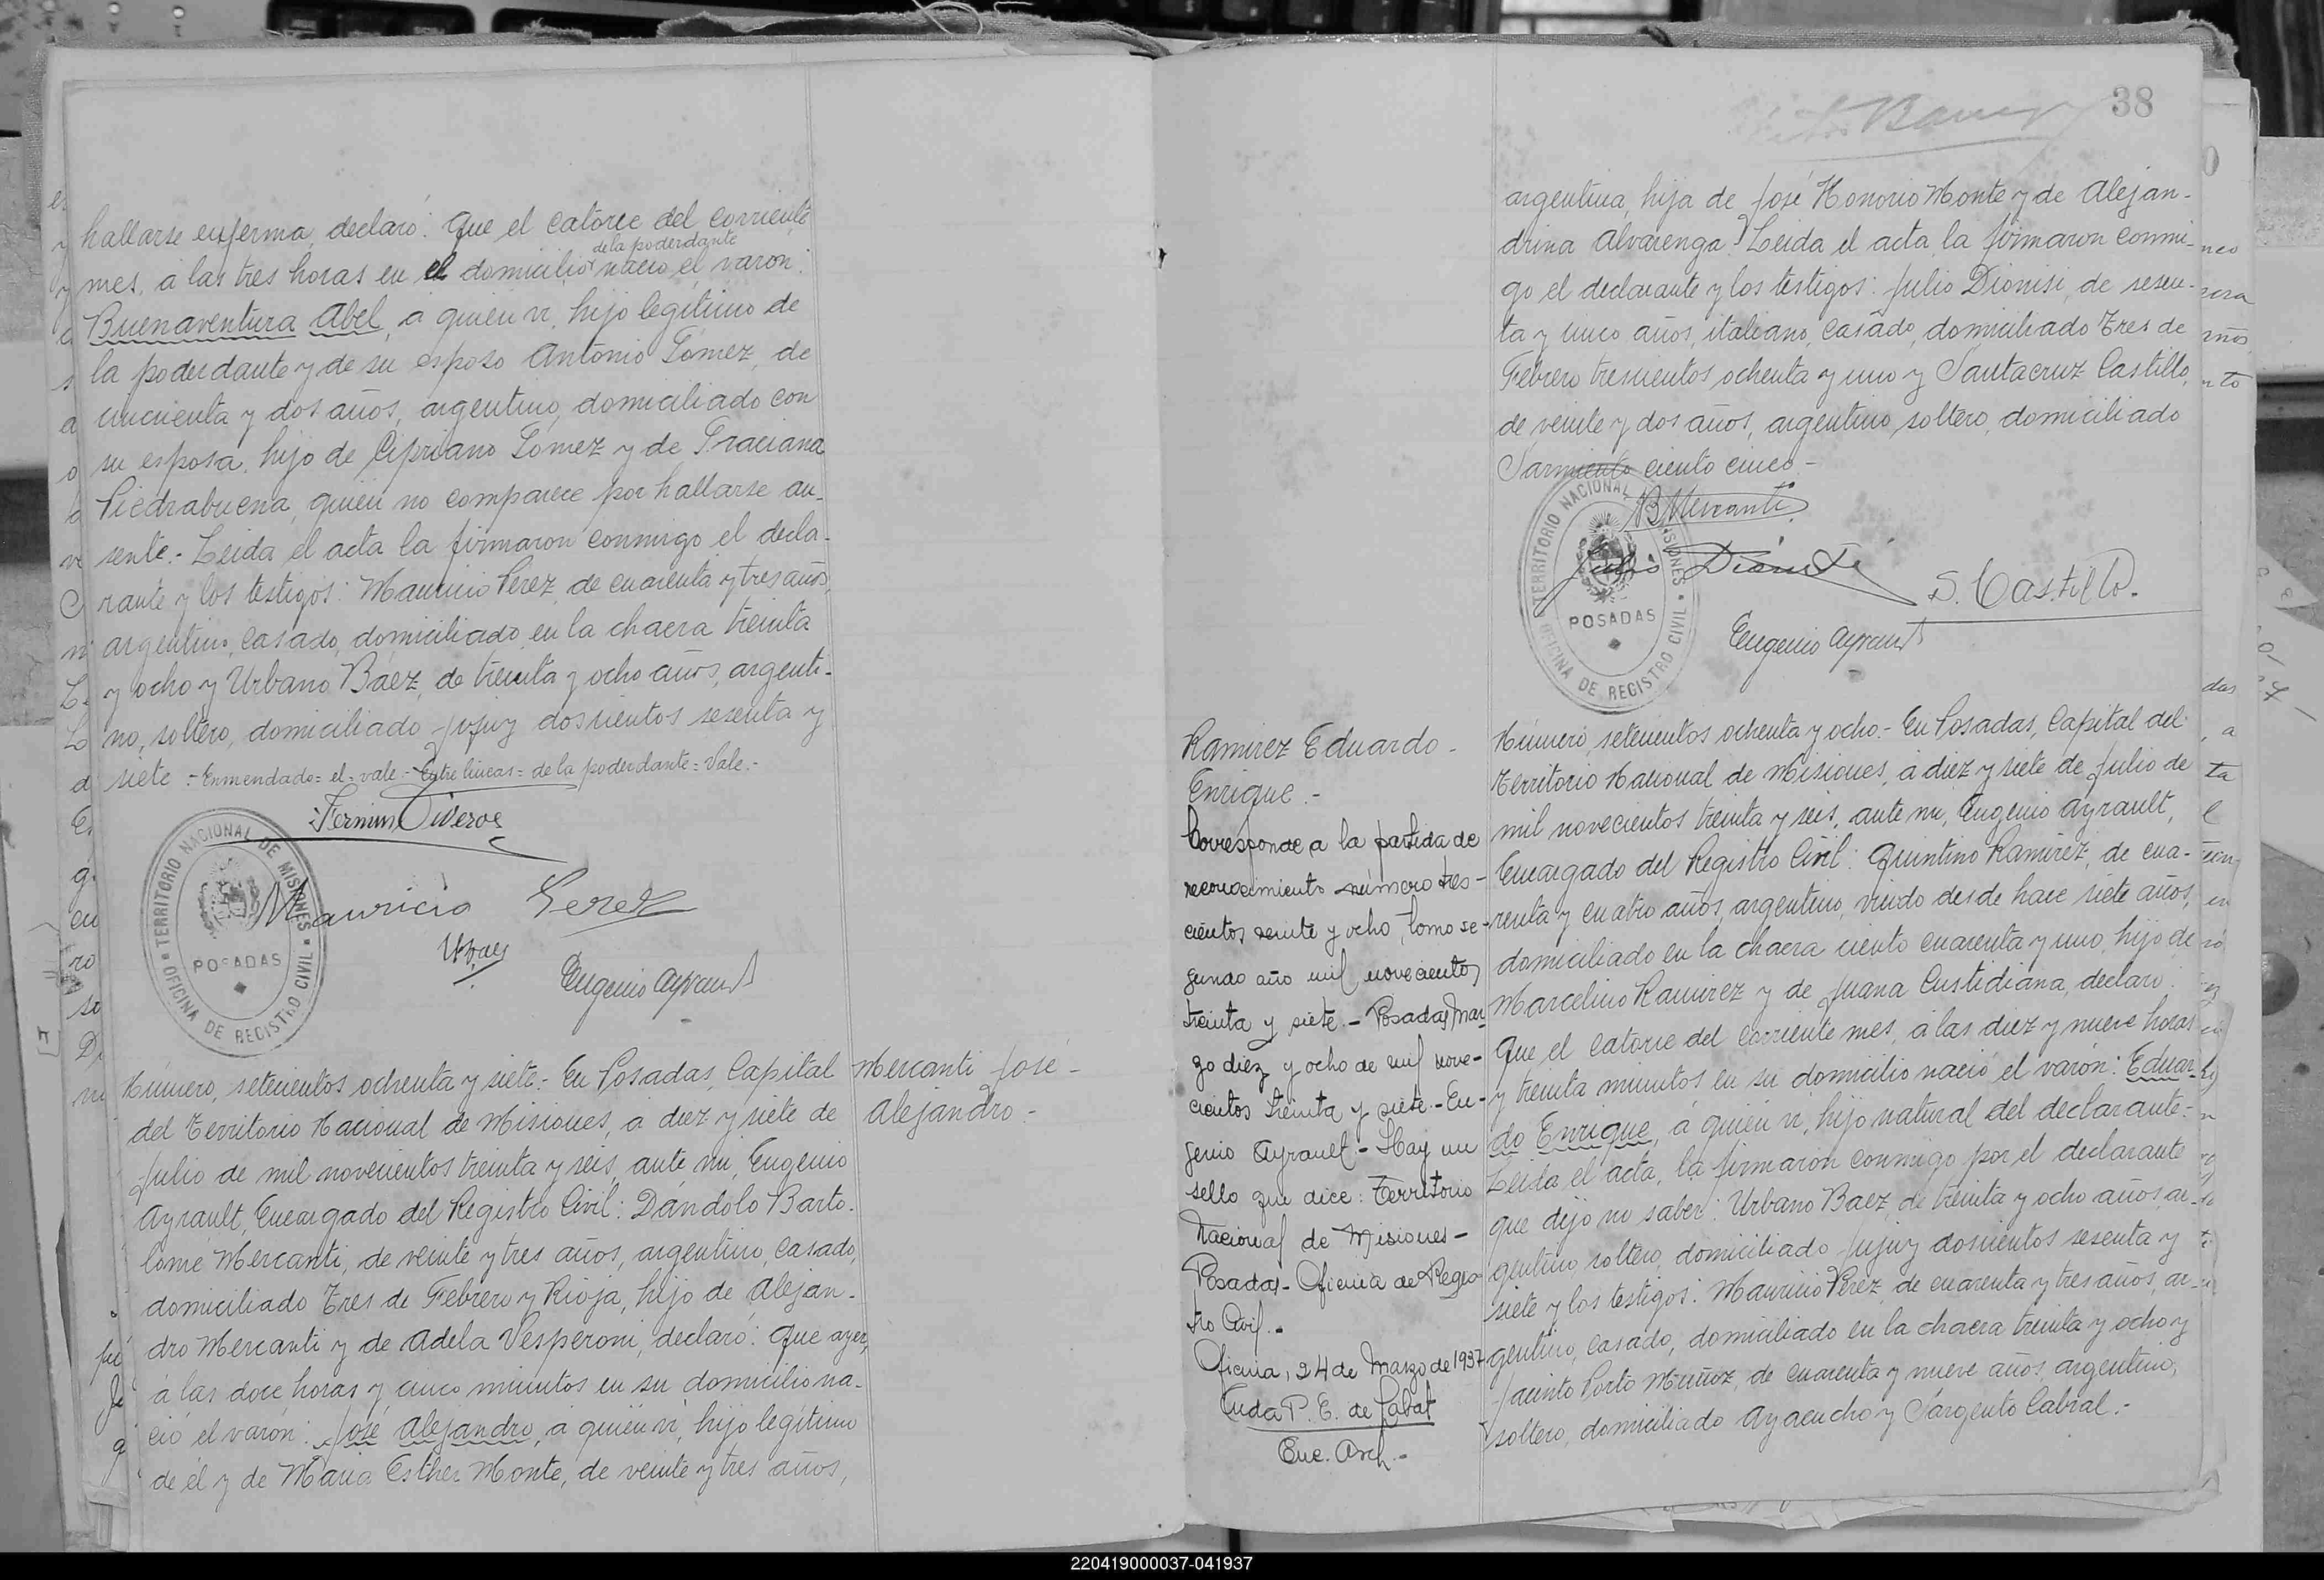 hallarse enferma, declaró: Que el catorce del corriente
de la poderdante
mes, á las tres horas en el domicilio nació el varón:
Buenaventura Abel, á quien ví, hijo legítimo de
la poderdante y de su esposo Antonio Gómez, de
cincuenta y dos años, argentino, domiciliado con
su esposa, hijo de Cipriano Gómez y de Graciana
Piedrabuena, quien no comparece por hallarse au-
sente.- Leida el acta la firmaron conmigo el decla-
rante y los testigos: Mauricio Perez, de cuarenta y tres años,
argentino, casado, domiciliado en la chacra treinta
y ocho y Urbano Baez, de treinta y ocho años, argenti-
no, soltero, domiciliado Jujuy doscientos sesenta y
siete.- Enmendado= el= vale.- Entre lineas= de la poderdante= Vale.-
TERRITORIO NACIONAL DE MISIONES
POSADAS
OFICINA DE REGISTRO CIVIL
Mauricio Perez
UBaez
Eugenio Ayrault
Número, setecientos ochenta y siete.- En Posadas, Capital
del Territorio Nacional de Misiones, á diez y siete de
Julio de mil novecientos treinta y seis, ante mí, Eugenio
Ayrault, Encargado del Registro Civil: Dándolo Barto-
lomé Mercanti, de veinte y tres años, argentino, casado,
domiciliado Tres de Febrero y Rioja, hijo de Alejan-
dro Mercanti y de Adela Vesperoni, declaró: Que ayer,
á las doce horas y cinco minutos en su domicilio na-
ció el varón: José Alejandro, á quien ví, hijo legítimo
de él y de Maria Esther Monte, de veinte y tres años,
Mercanti José-
Alejandro.-
38
argentina, hija de José Honorio Monte y de Alejan-
drina Alvarenga. Leida el acta, la firmaron conmi-
go el declarante y los testigos: Julio Dionisi, de sesen-
ta y cinco años, italiano, casado, domiciliado Tres de
Febrero trescientos ochenta y uno y Santacruz Castillo,
de veinte y dos años, argentino, soltero, domiciliado
Sarmiento ciento cinco.-
BMercanti
Julio Dionisi
S. Castillo.
TERRITORIO NACIONAL DE MISIONES
POSADAS
OFICINA DE REGISTRO CIVIL
Eugenio Ayrault
Ramirez Eduardo-
Enrique.-
Corresponde a la partida de
reconocimiento número tres-
cientos veinte y ocho, tomo se-
gundo año mil novecientos
treinta y siete.- Posadas, Mar-
zo diez y ocho de mil nove-
cientos treinta y siete.- Eu-
genio Ayrault - Hay un
sello que dice: Territorio
Nacional de Misiones-
Posadas- Oficina de Regis-
tro Civil.-
Oficina, 24 de Marzo de 1937
P. E. de Labat
Enc. Arch.-
Número, setecientos ochenta y ocho.- En Posadas, Capital del
Territorio Nacional de Misiones, á diez y siete de Julio de
mil novecientos treinta y seis, ante mí, Eugenio Ayrault,
Encargado del Registro Civil: Quintino Ramirez, de cua-
renta y cuatro años, argentino, viudo desde hace siete años,
domiciliado en la chacra ciento cuarenta y uno, hijo de
Marcelino Ramirez y de Juana Custidiana, declaró:
Que el catorce del corriente mes, á las diez y nueve horas
y treinta minutos en su domicilio nació el varón: Eduar-
do Enrique, á quien ví, hijo natural del declarante.-
Leida el acta, la firmaron conmigo por el declarante
que dijo no saber: Urbano Baez, de treinta y ocho años, ar-
gentino, soltero, domiciliado Jujuy doscientos sesenta y
siete y los testigos: Mauricio Pérez, de cuarenta y tres años, ar-
gentino, casado, domiciliado en la chacra treinta y ocho y
Jacinto Porto Muñoz, de cuarenta y nueve años, argentino,
soltero, domiciliado Ayacucho y Sargento Cabral.-
220419000037-041937